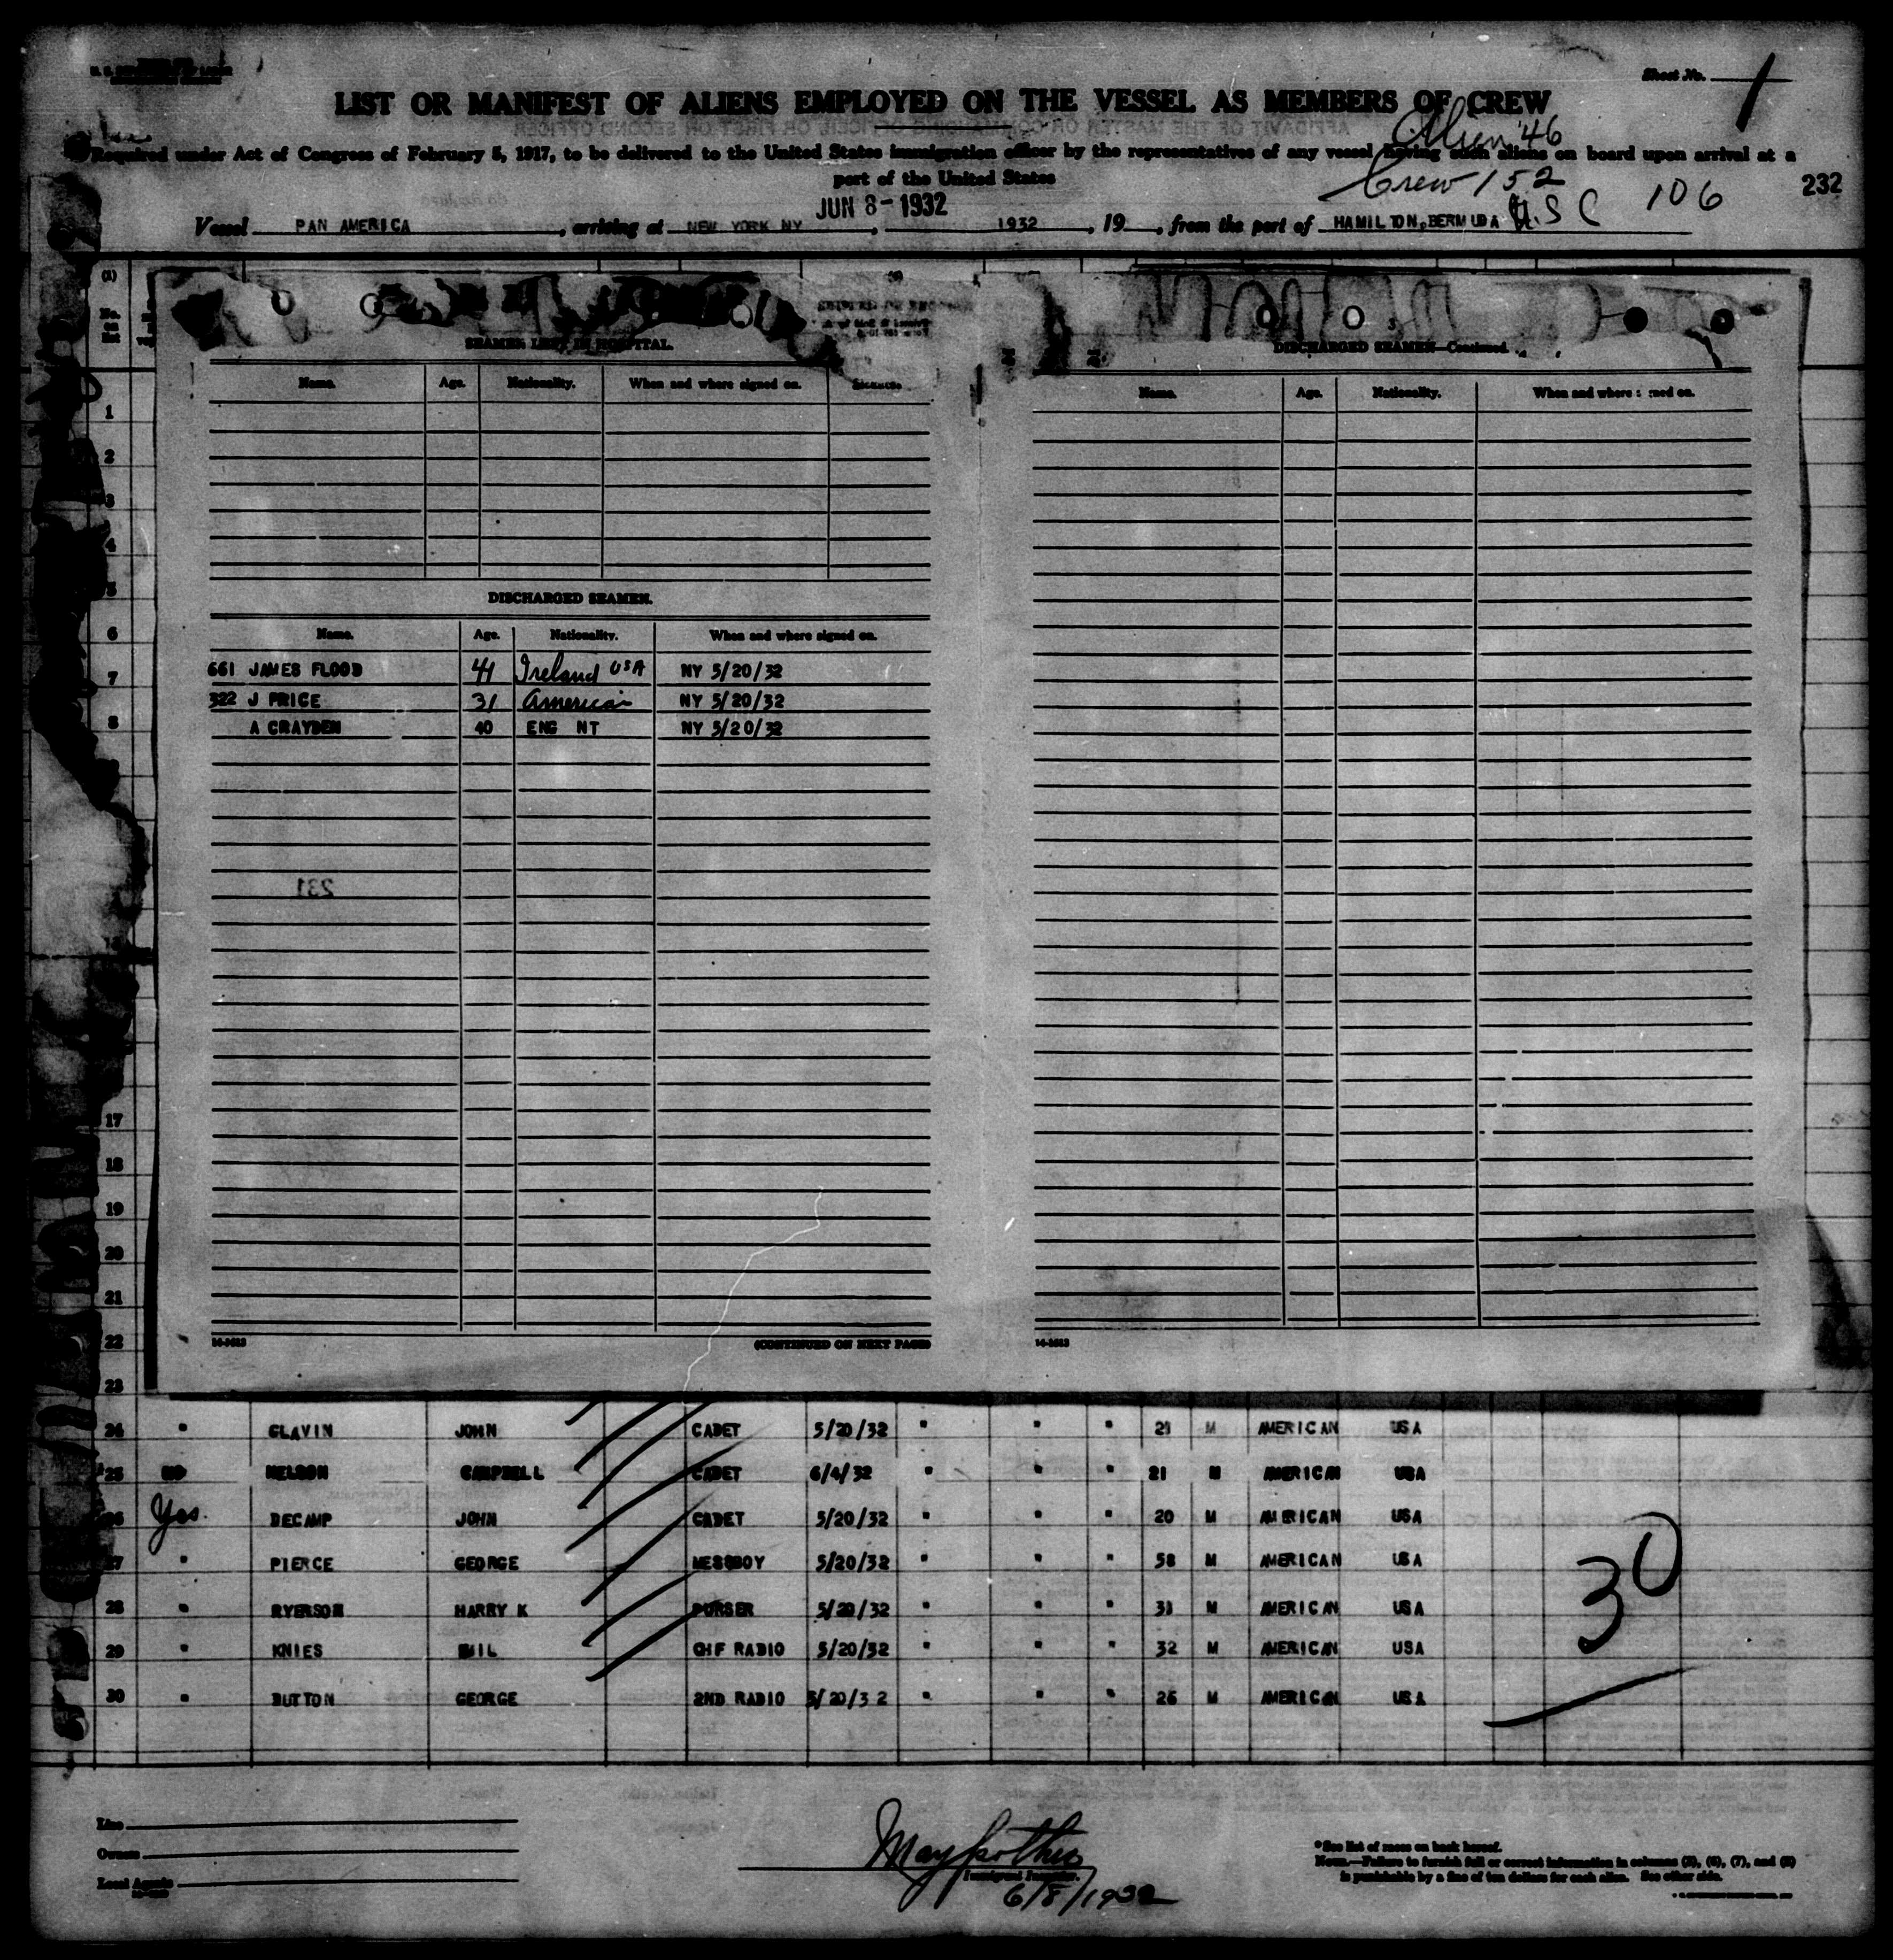 Sheet No. 1
LIST OR MANIFEST OF ALIENS EMPLOYED ON THE VESSEL AS MEMBERS OF CREW
Alien 46
Required under Act of Congress of February 5, 1917, to be delivered to the United States immigration officer by the representatives of any vessel having such aliens on board upon arrival at a
port of the United States
Crew 152
232
JUN 8 - 1932
U.S.C 106
Vessel PAN AMERICA, arriving at NEW YORK NY, 1932, 19, from the port of HAMILTON, BERMUDA
(1)
No. on list
SEAMEN LEFT IN HOSPITAL.
DISCHARGED SEAMEN—Continued.
Name. Age. Nationality. When and where signed on.
Name. Age. Nationality. When and where signed on.
1
2
3
4
5
DISCHARGED SEAMEN.
6
Name. Age. Nationality. When and where signed on.
661 JAMES FLOOD 41 Ireland USA NY 5/20/32
7
322 J PRICE 31 American NY 5/20/32
8
A CRAYDEN 40 ENG NT NY 5/20/32
231
17
18
19
20
21
22
14-1613 (CONTINUED ON NEXT PAGE)
14-1613
23
24 " GLAVIN JOHN CADET 5/20/32 " " " 21 M AMERICAN USA
25 NO NELSON CAMPBELL CADET 6/4/32 " " " 21 M AMERICAN USA
26 Yes. DECAMP JOHN CADET 5/20/32 " " " 20 M AMERICAN USA
27 " PIERCE GEORGE MESSBOY 5/20/32 " " " 58 M AMERICAN USA
30
28 " RYERSON HARRY K PURSER 5/20/32 " " " 31 M AMERICAN USA
29 " KNIES EMIL CHF RADIO 5/20/32 " " " 32 M AMERICAN USA
30 " BUTTON GEORGE 2ND RADIO 5/20/32 " " " 26 M AMERICAN USA
Line
Owners
Local Agents
Immigrant Inspector.
6/8/1932
*See list of races on back hereof.
NOTE.—Failure to furnish full or correct information in columns (3), (6), (7), and (8)
is punishable by a fine of ten dollars for each alien. See other side.